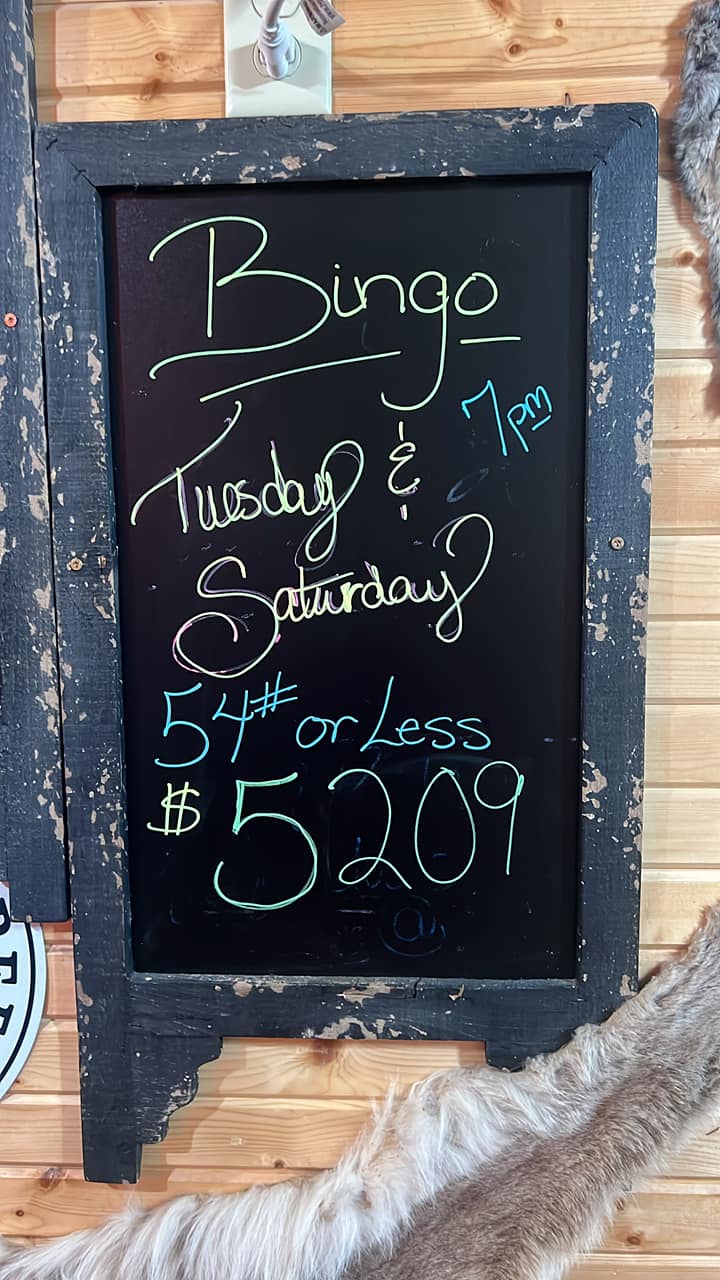 Bingo
7pm
Tuesday &
Saturday
54# or Less
$ 5209